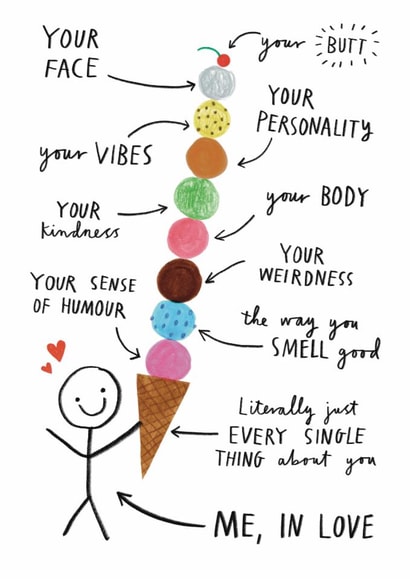 your BUTT
YOUR
FACE
YOUR
PERSONALITY
your VIBES
your BODY
YOUR
kindness
YOUR
WEIRDNESS
YOUR SENSE
OF HUMOUR
the way you
SMELL good
Literally just
EVERY SINGLE
THING about you
ME, IN LOVE